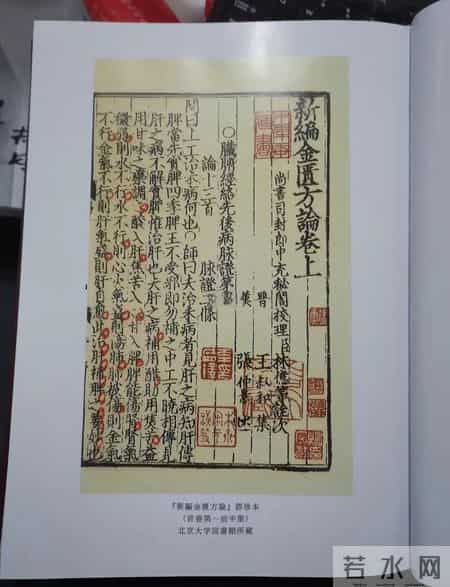 新編金匱方論卷上
尚書司封郎中充秘閣校理臣林億等詮次
晉 王叔和 集
漢 張仲景 述
○臟腑經絡先後病脉證第一
論十三首 脉證二條
問曰上工治未病何也○師曰夫治未病者見肝之病知肝傳
脾當先實脾四季脾王不受邪即勿補之中工不曉相傳見
肝之病不解實脾惟治肝也夫肝之病補用酸助用焦苦益
用甘味之藥調之酸入肝焦苦入心甘入脾脾能傷腎腎氣
微弱則水不行水不行則心火氣盛則傷肺肺被傷則金氣
不行金氣不行則肝氣盛則肝自愈此治肝補脾之要妙也
『新編金匱方論』鄧珍本
（首卷第一前半葉）
北京大学図書館所蔵
若水网